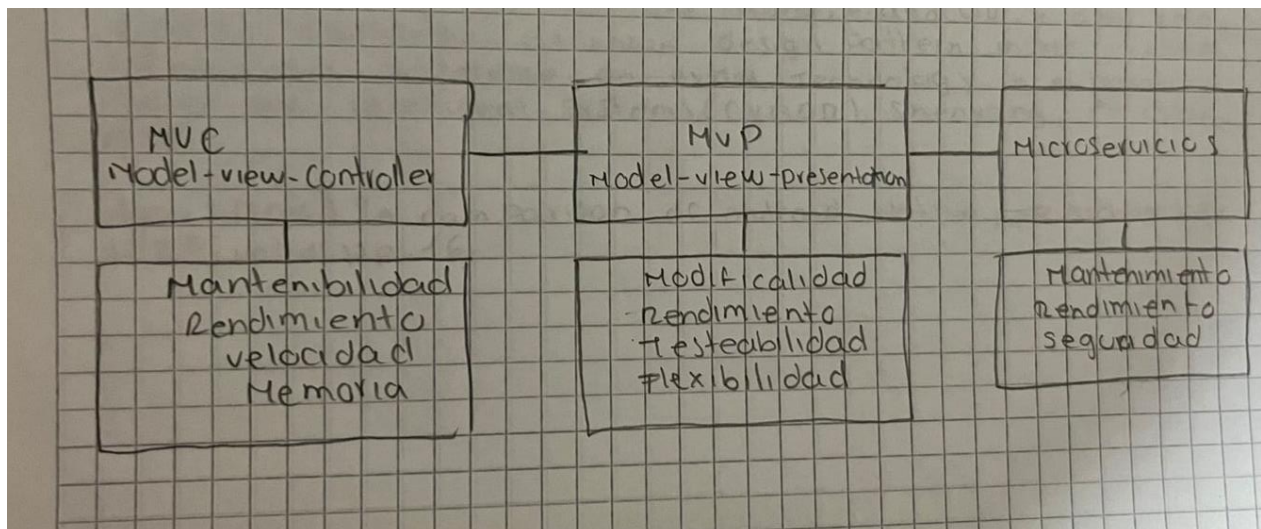 MVC
Model-view-controller
Mantenibilidad
Rendimiento
velocidad
Memoria
MVP
Model-view-presentation
Modificalidad
Rendimiento
testeabilidad
Flexibilidad
Microservicios
Mantenimiento
Rendimiento
seguridad